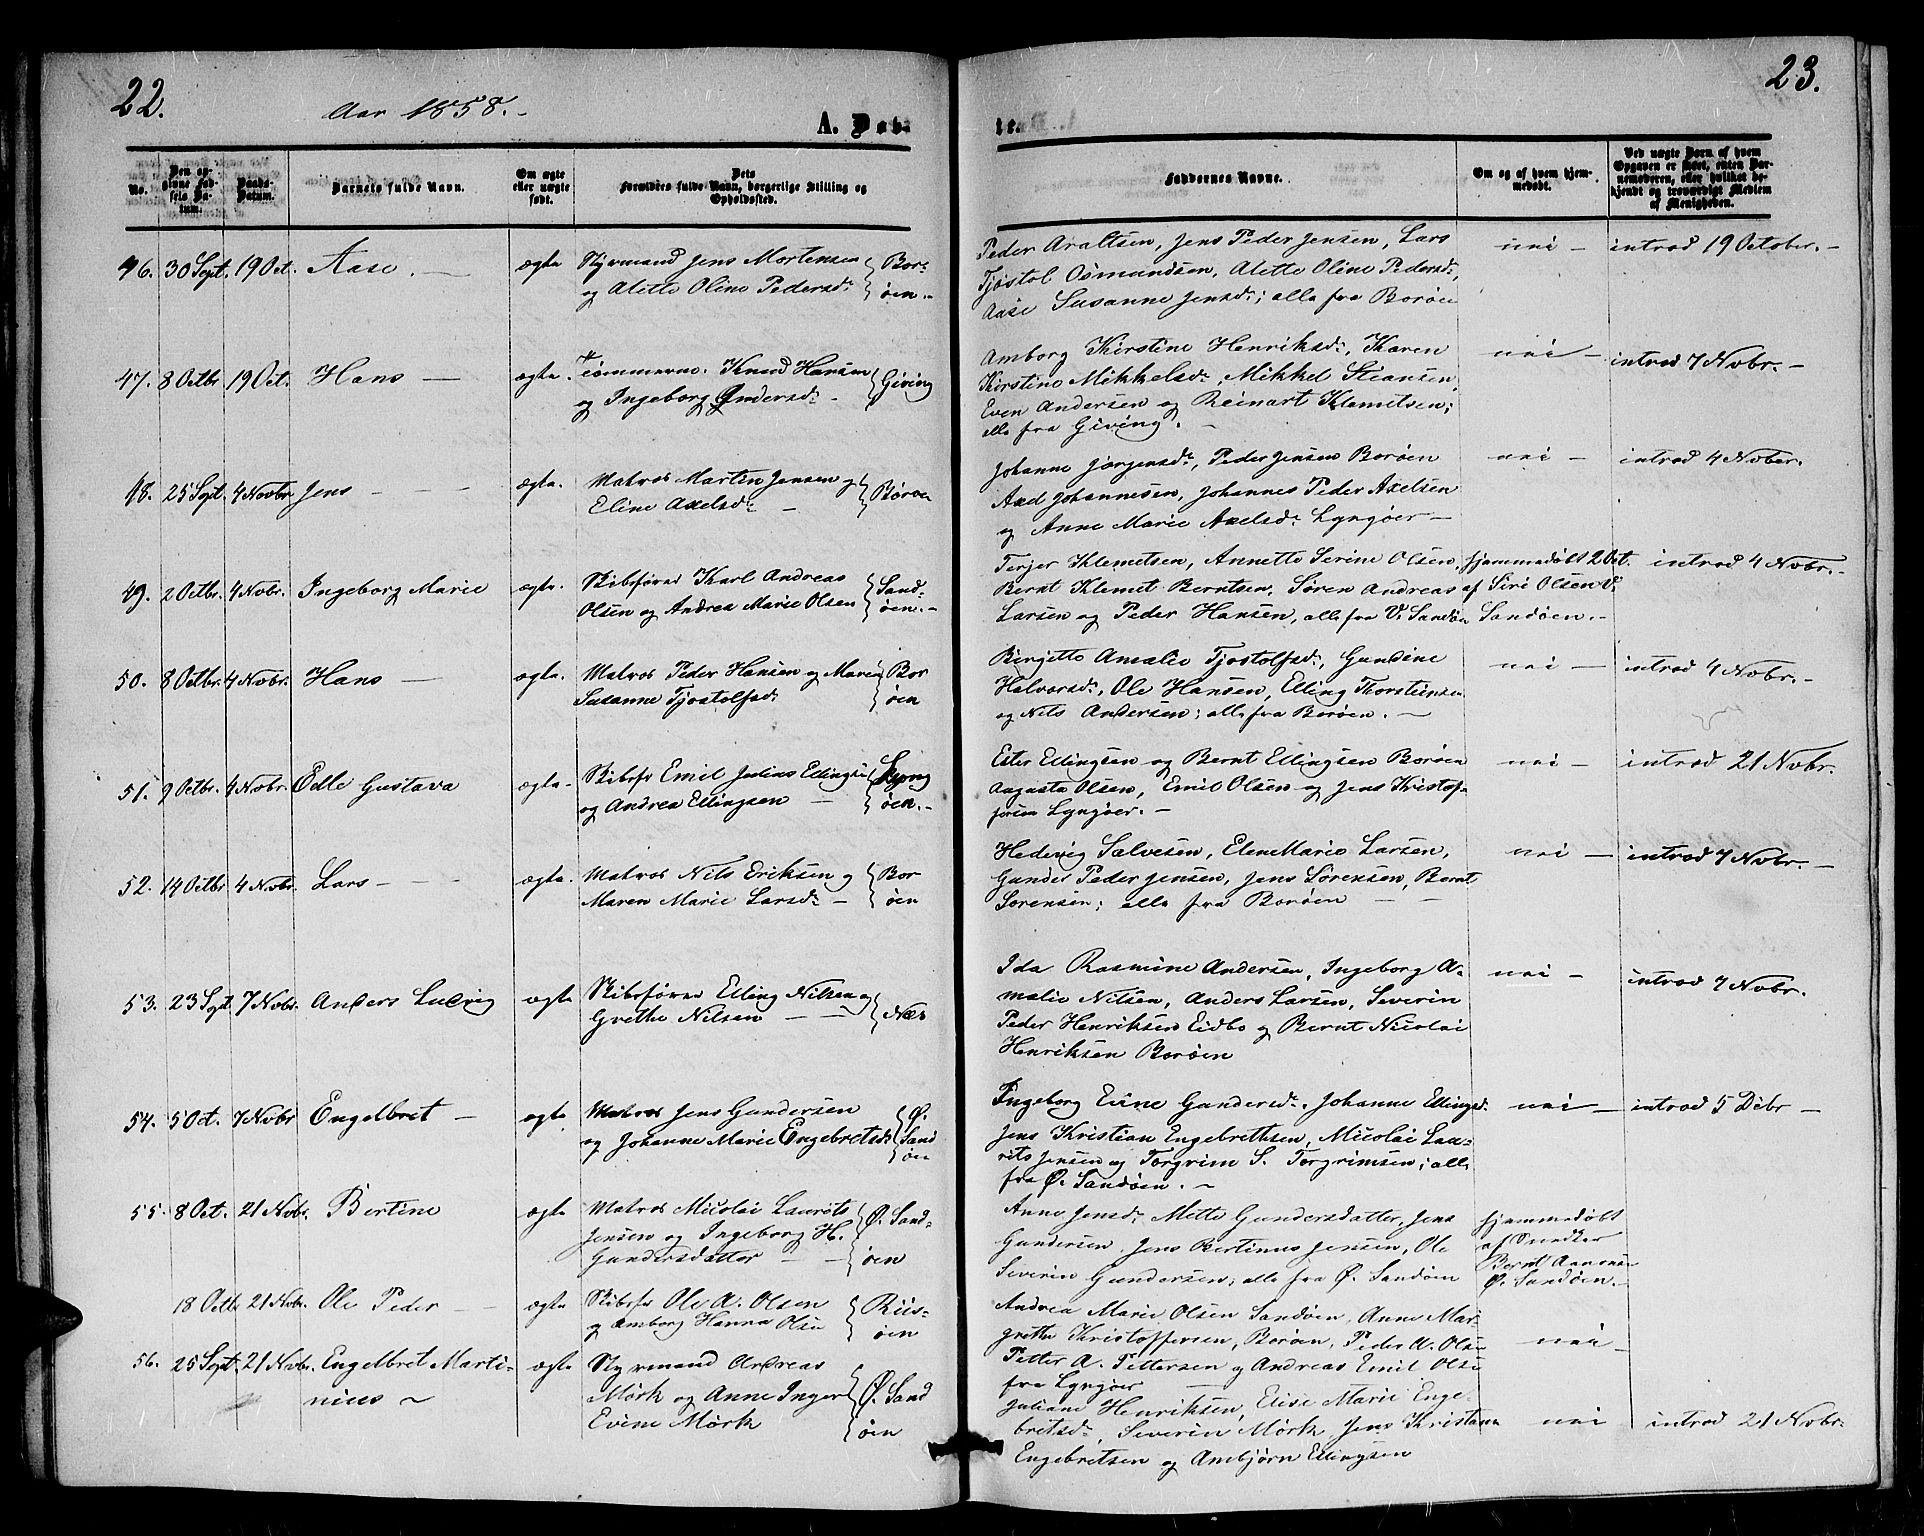 22.
Aar 1858.-
A. Døb-
23.
No.
Den op-
givne Fød-
sels Da-
tum.
Daabs-
Datum.
Barnets fulde Navn.
Om ægte
eller uægte
født.
Dets
Forældres fulde Navn, borgerlige Stilling og
Opholdssted.
Faddernes Navne.
Om og af hvem hjem-
medøbt.
Ved uægte Børn af hvem
Opgaven er skeet, enten Bar-
nemoderen, eller hvilket be-
kjendt og troværdigt Medlem
af Menigheden.
46. 30 Sept. 19 Oct. Aase. —
ægte
Styrmand Jens Mortensen
og Alette Oline Pedersd:
Bor-
øen.-
Peder Araltsen, Jens Peder Jensen, Lars
Tjøstol Osmundsen, Alette Oline Pedersd:,
Aase Susanne Jensd:; alle fra Borøen
nei —
introd 19 October.-
47. 8 Octbr 19 Oct. Hans —
ægte.
Tømmerm. Knud Hansen
og Ingeborg Andersd: -
Giving
Amborg Kirstine Henriksd:, Karen
Kirstine Mikkelsd:, Mikkel Stiansen,
Even Andersen og Reinart Klemetsen;
alle fra Giving. -
nei —
introd 7 Nobr.-
48. 25 Sept. 4 Novbr Jens - - -
ægte.
Matros Martin Jensen og
Eline Axelsd: —
Borøen
Johanne Jørgensd:, Peder Jensen Borøen
Axel Johannesen, Johannes Peder Axelsen
og Anne Marie Axelsd: Lyngøer —
nei —
introd 4 Nober.
49. 2 Octbr. 4 Novbr. Ingeborg Marie
ægte.
Skibsfører Karl Andreas
Olsen og Andrea Marie Olsen
Sand-
øen.-
Terjer Klemetsen, Annette Serine Olsen,
Bernt Klemet Berntsen, Søren Andreas
Larsen og Peder Hansen, alle fra V. Sandøen
hjemmedøbt 2 Oct.
af Siri Olsen V.
Sandøen.-
introd 4 Nobr.-
50. 8 Octbr. 4 Nobr. Hans —
ægte.
Matros Peder Hansen og Maren
Susanne Tjostolfsd:
Bor
øen
Birgitte Amalie Tjostolfsd:, Gundine
Halvorsd:, Ole Hansen, Elling Thorstensen
og Nils Andersen; alle fra Borøen. —
nei —
introd 4 Nobr.-
51. 9 Octbr. 4 Novbr. Edle Gustava
ægte.
Skibsfr Emil Julius Ellingsen
og Andrea Ellingsen —
Lyng
øen.-
Ester Ellingsen og Bernt Ellingsen Borøen
Augusta Olsen, Emil Olsen og Jens Kristof-
fersen Lyngøer. -
nei —
introd 21 Nobr.
52. 14 Octbr 4 Novbr. Lars - - -
ægte.
Matros Nils Eriksen og
Maren Marie Larsd: —
Bor
øen
Hedevig Salvesen, Elen Marie Larsen,
Gunder Peder Jensen, Jens Sørensen, Bernt
Sørensen; alle fra Borøen — —
nei —
introd 7 Nobr. —
53. 23 Sept 7 Nobr. Anders Ludvig
ægte
Skibsfører Elling Nilsen og
Grethe Nilsen — —
Næs
Ida Rasmine Andersen, Ingeborg A-
malie Nilsen, Anders Larsen, Severin
Peder Henriksen Eidbo og Bernt Nicolai
Henriksen Borøen
nei —
introd 7 Nobr.
54. 5 Oct. 7 Nobr Engelbret —
ægte
Matros Jens Gundersen
og Johanne Marie Engebretsd:
Ø.
Sand
øen
Ingeborg Eline Gundersd:, Johanne Ellingsd:
Jens Kristian Engebrethsen, Nicolai Lau-
rits Jensen og Torgrim S. Torgrimsen; alle
fra Ø. Sandøen. ~
nei —
introd 5 Dcbr —
55. 8 Oct. 21 Nobr. Bertine
ægte
Matros Nicolai Laurits
Jensen og Ingeborg H.
Gundersdatter — —
Ø. Sand-
øen
Anne Jensd: Mette Gundersdatter, Jens
Gundersen, Jens Bertinus Jensen, Ole
Severin Gundersen; alle fra Ø. Sandøen
hjemmedøbt
af
Bernt Aanonsen
Ø. Sandøen.-
18 Octbr 21 Nobr. Ole Peder —
ægte
Skibsfr Ole A. Olsen
og Amborg Hanna Olsen
Riis-
øen
Andrea Marie Olsen Sandøen, Anne Mar-
grethe Kristoffersen, Borøen, Peder A. Olsen
Petter A. Pettersen og Andreas Emil Olsen
fra Lyngøer —
nei —
56. 25 Sept. 21 Nobr. Engelbret Marti-
nius ~
ægte
Styrmand Andreas
Mørk og Anne Inger
Evine Mørk
Ø. Sand
øen
Juliane Henriksen, Elise Marie Enge-
bretsd:, Severin Mørk, Jens Kristian
Engebretsen og Ambjørn Ellingsen
nei
introd 21 Nobr.